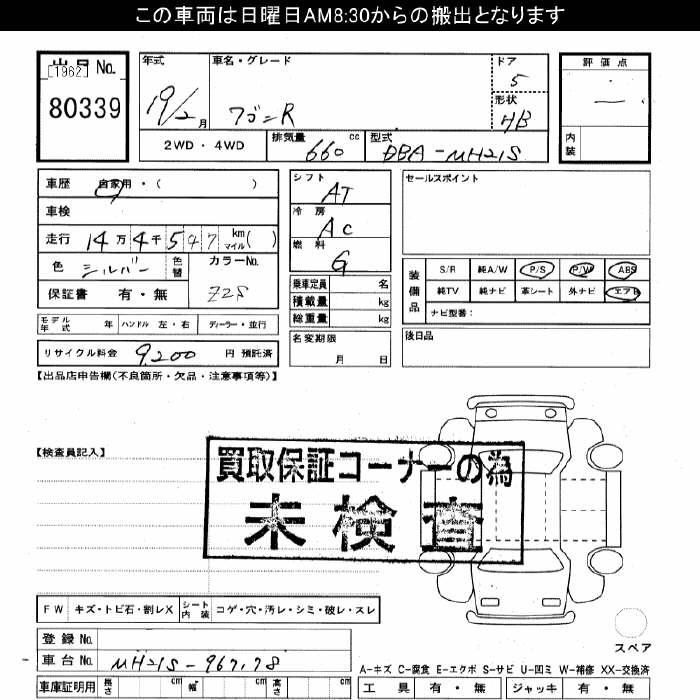 この車両は日曜日AM8:30からの搬出となります
出品 No.
[1962]
80339
年式
19/2 月
車名・グレード
ワゴンR
ドア
5
形状
HB
評価点
内装
2WD ・ 4WD
排気量 660 cc
型式 DBA-MH21S
車歴 自家用・( )
車検
走行 14万4千547 km マイル( )
色 シルバー 色替
カラーNo. Z2S
保証書 有・無
シフト
AT
冷房
AC
燃料
G
乗車定員 名
積載量 kg
総重量 kg
セールスポイント
装備品
S/R 純A/W P/S P/W ABS
純TV 純ナビ 革シート 外ナビ エアB
ナビ型番:
モデル年式 年 ハンドル 左・右 ディーラー・並行
リサイクル料金 9,200 円 預託済
名変期限
月 日
後日品
【出品店申告欄(不良箇所・欠品・注意事項等)】
【検査員記入】
買取保証コーナーの為
未検査
FW キズ・トビ石・割レX シート内装 コゲ・穴・汚レ・シミ・破レ・スレ
スペア
登録 No.
車台 No. MH21S-967178
A-キズ C-腐食 E-エクボ S-サビ U-凹ミ W-補修 XX-交換済
車庫証明用 長さ cm 幅 cm 高さ cm
工具 有・無 ジャッキ 有・無